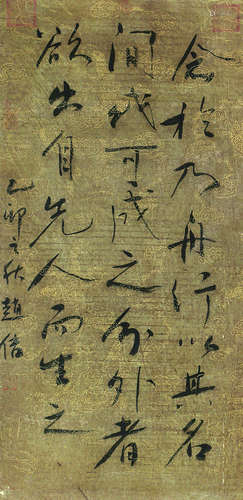 念於乃舟行以其名
間或可成之分外者
欲出自先人而生之
乙卯之秋趙倍